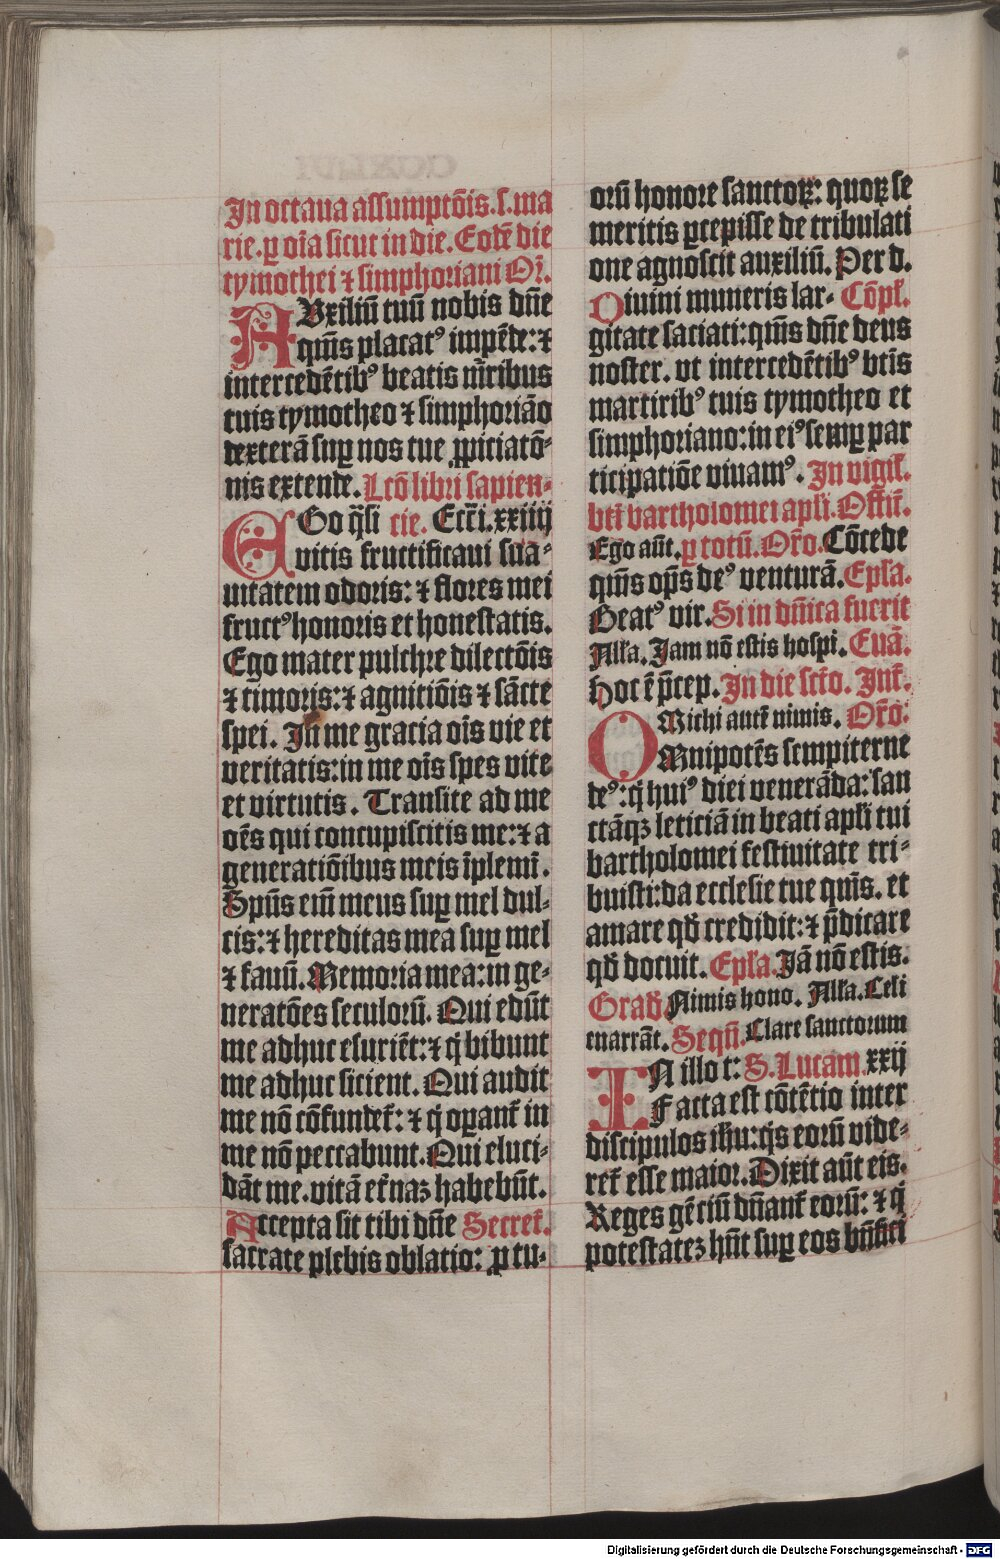 In octaua assumptōis. s. ma
rie. ꝑ oīa sicut in die. Eodē die
tymothei ⁊ simphoriani Or̄.
AVxiliū tuū nobis dn̄e
qm̄s placatꝰ impēde: ⁊
intercedētibꝰ beatis mr̄ibus
tuis tymotheo ⁊ simphoriāo
dexterā suꝑ nos tue ꝓpiciatō-
nis extende. Lcō libri sapien-
EGo q̄si cie. Ecc̄i. xxiiij
vitis fructificaui sua-
uitatem odoris: ⁊ flores mei
fructꝰ honoris et honestatis.
Ego mater pulchre dilectōis
⁊ timoris: ⁊ agnitiōis ⁊ sācte
spei. In me gracia oīs vie et
veritatis: in me oīs spes vite
et virtutis. Transite ad me
oēs qui concupiscitis me: ⁊ a
generatiōibus meis īplemī.
Spūs em̄ meus suꝑ mel dul-
cis: ⁊ hereditas mea suꝑ mel
⁊ fauū. Memoria meā: in ge-
neratōes seculorū. Qui edūt
me adhuc esuriēt: ⁊ q̄ bibunt
me adhuc sicient. Qui audit
me nō cōfundet̄: ⁊ q̄ oꝑant̄ in
me nō peccabunt. Qui eluci-
dāt me. vitā et̄naꝫ habebūt.
Accepta sit tibi dn̄e Secret̄.
sacrate plebis oblatio: ꝓ tu-
orū honore sanctoꝝ: quoꝝ se
meritis ꝑcepisse de tribulati
one agnoscit auxiliū. Per d.
Diuini muneris lar- Cōpl̄.
gitate saciati: qm̄s dn̄e deus
noster. vt intercedētibꝰ bt̄is
martiribꝰ tuis tymotheo et
simphoriano: in eiꝰ semꝑ par
ticipatiōe viuamꝰ. In vigil̄.
bt̄i bartholomei apl̄i. Offm̄.
Ego aūt. ꝑ totū. Or̄o. Cōcede
qm̄s op̄s deꝰ venturā. Epl̄a.
Beatꝰ vir. Si in dn̄ica fuerit
Al̄la. Jam nō estis hospi. Euā.
hoc ē p̄cep. In die scō. Int̄.
Michi autē nimis. Or̄o:
OMnipotēs sempiterne
deꝰ: q̄ huiꝰ diei venerāda: san
ctāqꝫ leticiā in beati apl̄i tui
bartholomei festiuitate tri-
buisti: da ecclesie tue qm̄s. et
amare qđ credidit: ⁊ p̄dicare
qđ docuit. Epl̄a. Jā nō estis.
Građ Nimis hono. Al̄la. Celi
enarrāt. Seqn̄. Clare sanctorum
IN illo t: S. Lucam. xxij
Facta est cōtētio inter
discipulos ih̄u: q̄s eorū vide-
ret̄ esse maior. Dixit aūt eis.
Reges gētiū dn̄ant̄ eorū: ⁊ q̄
potestateꝫ hn̄t suꝑ eos bn̄fici
Digitalisierung gefördert durch die Deutsche Forschungsgemeinschaft - DFG